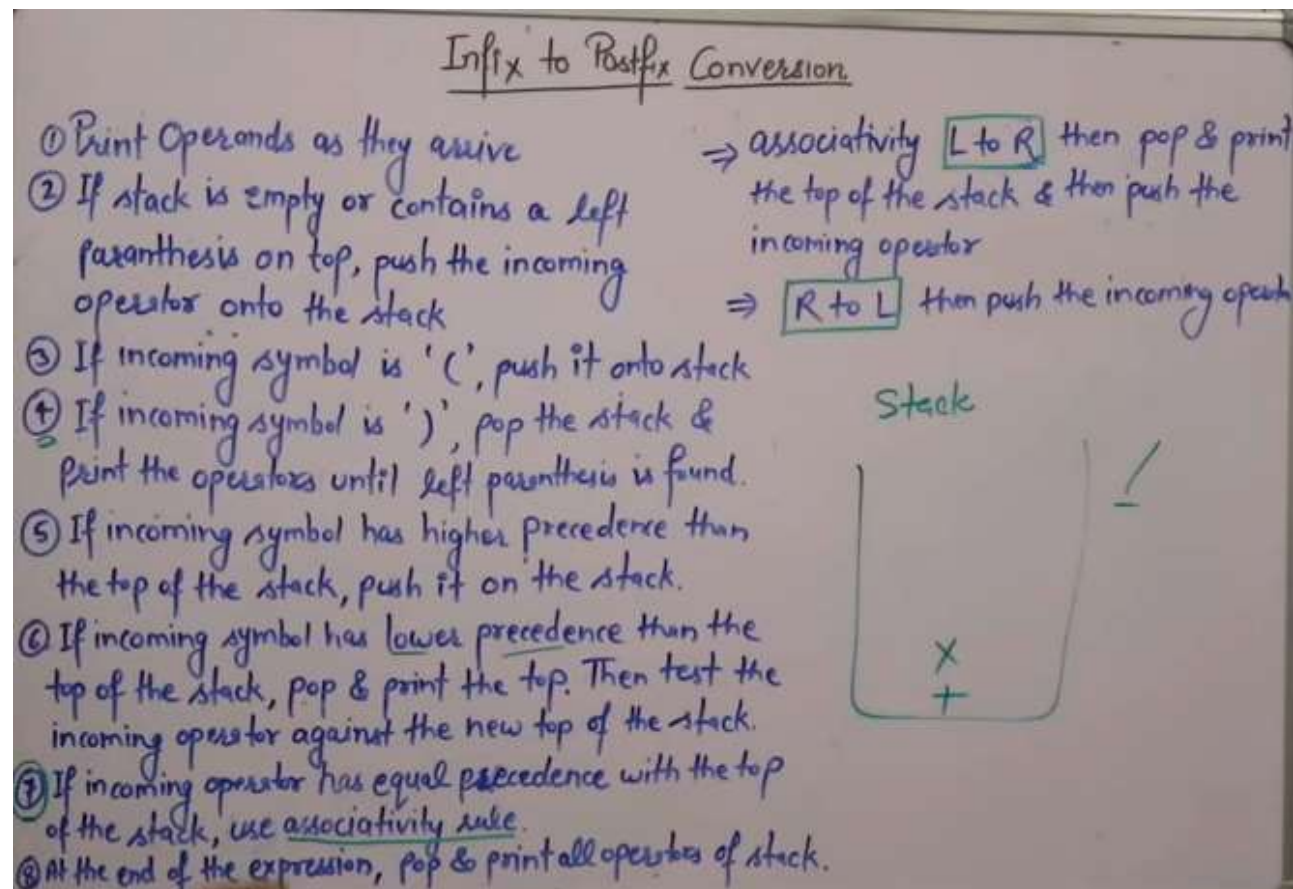 Infix to Postfix Conversion
① Print Operands as they arrive
② If stack is empty or contains a left
paranthesis on top, push the incoming
operator onto the stack
③ If incoming symbol is '(', push it onto stack
④ If incoming symbol is ')', pop the stack &
print the operators until left parenthesis is found.
⑤ If incoming symbol has higher precedence than
the top of the stack, push it on the stack.
⑥ If incoming symbol has lower precedence than the
top of the stack, pop & print the top. Then test the
incoming operator against the new top of the stack.
⑦ If incoming operator has equal precedence with the top
of the stack, use associativity rule.
⑧ At the end of the expression, pop & print all operators of stack.
⇒ associativity L to R then pop & print
the top of the stack & then push the
incoming operator
⇒ R to L then push the incoming operato
Stack
/
-
×
+